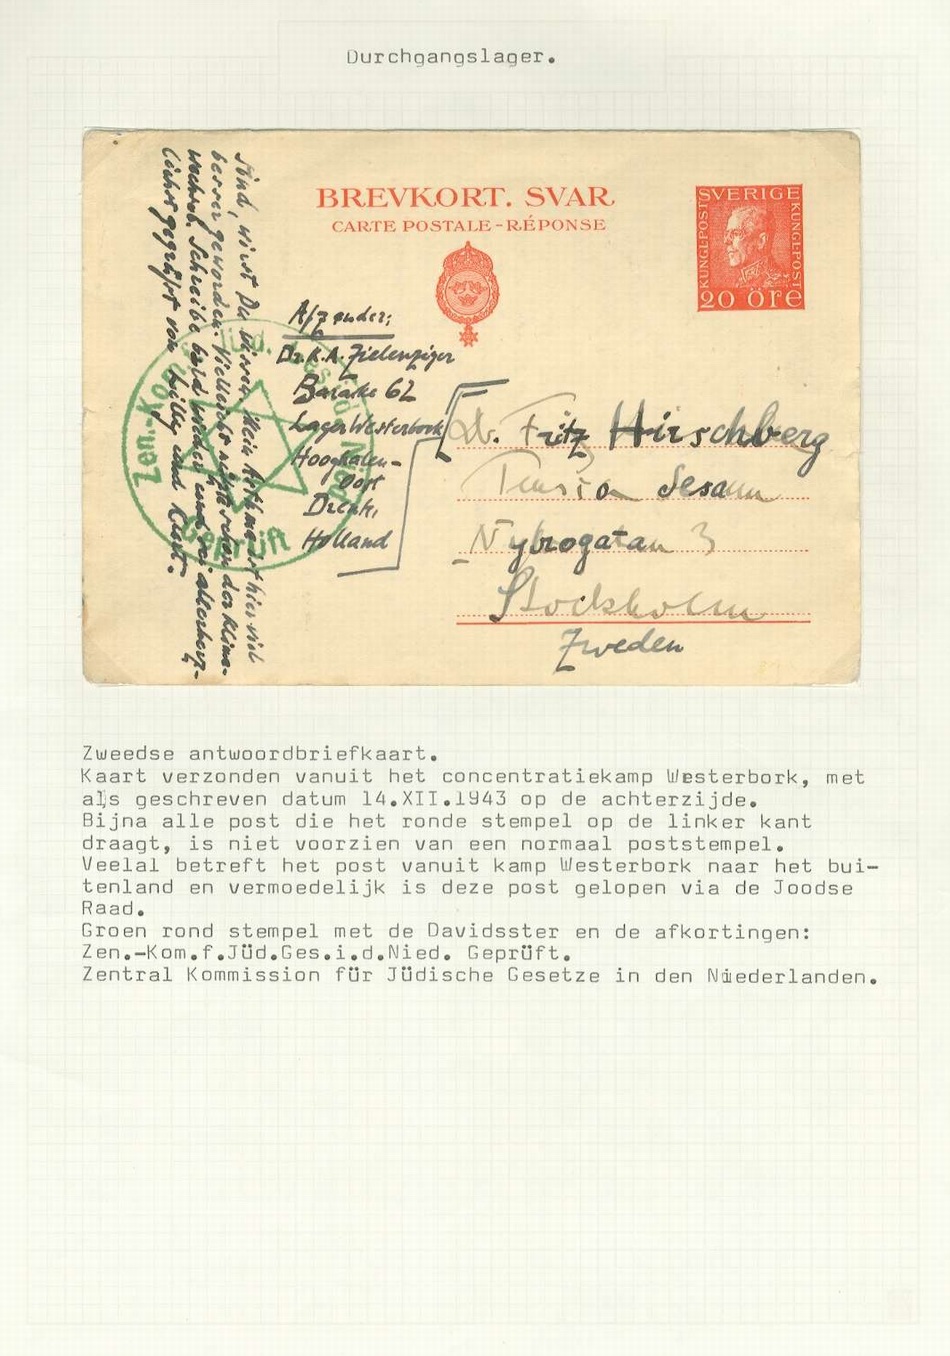 Durchgangslager.
BREVKORT. SVAR.
CARTE POSTALE-RÉPONSE
SVERIGE
KUNGL·POST
KUNGL·POST
20 öre
sind, wirst Du wissen. Mein Asthma ist hier viel
besser geworden. Vielleicht nützte schon der Klima-
wechsel. Schreibe bald wieder und sei allerherz-
lichst gegrüßt von Lilly und Kurt.
Zen.-Kom. f. Jüd. Ges. i. d. Nied.
Geprüft
Afzender:
Dr. K.A. Zielenziger
Barake 62
Lager Westerbork
Hooghalen-
Oost
Drente,
Holland
Dr. Fritz Hirschberg
Pension Sesam
Nybrogatan 3
Stockholm
Zweden
Zweedse antwoordbriefkaart.
Kaart verzonden vanuit het concentratiekamp Westerbork, met
als geschreven datum 14.XII.1943 op de achterzijde.
Bijna alle post die het ronde stempel op de linker kant
draagt, is niet voorzien van een normaal poststempel.
Veelal betreft het post vanuit kamp Westerbork naar het bui-
tenland en vermoedelijk is deze post gelopen via de Joodse
Raad.
Groen rond stempel met de Davidsster en de afkortingen:
Zen.-Kom.f.Jüd.Ges.i.d.Nied. Geprüft.
Zentral Kommission für Jüdische Gesetze in den Niederlanden.